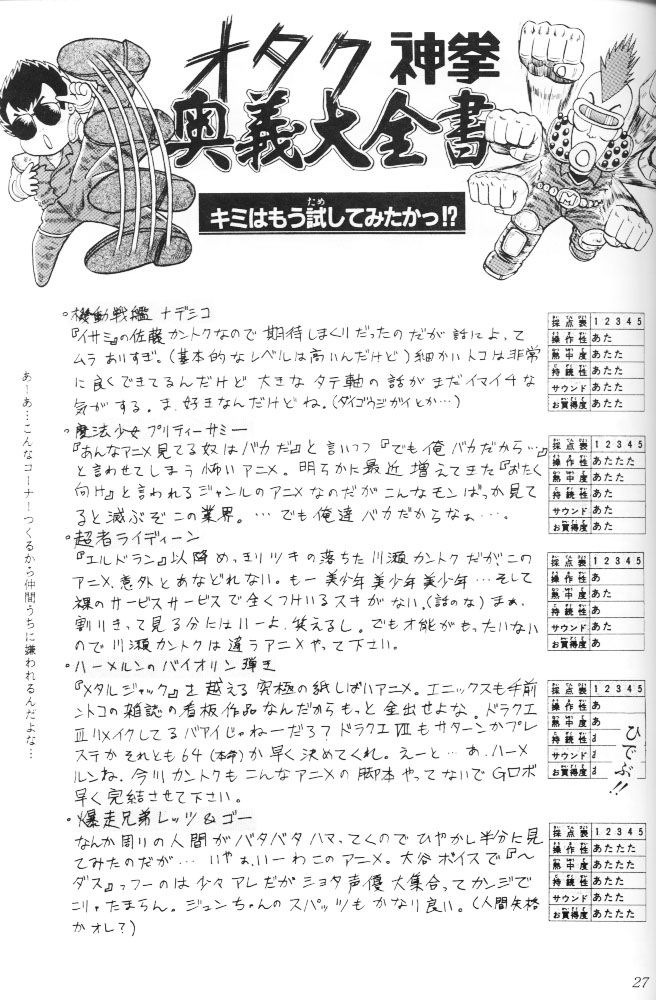 オタク神拳
奥義大全書
キミはもう試してみたかっ!?
ため
。機動戦艦ナデシコ
『イサミ』の佐藤カントクなので期待しまくりだったのだが話によって
ムラありすぎ。(基本的なレベルは高いんだけど)細かいトコは非常
に良くできてるんだけど大きなタテ軸の話がまだイマイチな
気がする。ま、好きなんだけどね。(ダイゴウジガイとか…)
採点表 1 2 3 4 5
操作性 あた
熱中度 あたた
持続性 あたた
サウンド あたた
お買得度 あたた
。魔法少女プリティーサミー
『あんなアニメ見てる奴はバカだ』と言いつつ『でも俺バカだから…』
と言わせてしまう怖いアニメ。明らかに最近増えてきた『おたく
向け』と言われるジャンルのアニメなのだがこんなモンばっか見て
ると滅ぶぞこの業界。…でも俺達バカだからなぁ…。
採点表 1 2 3 4 5
操作性 あたたた
熱中度 あたた
持続性 あた
サウンド あた
お買得度 あた
。超者ライディーン
『エルドラン』以降めっきりツキの落ちた川瀬カントクだがこの
アニメ、意外とあなどれない。もー美少年美少年美少年…そして
裸のサービスサービスで全くつけいるスキがない。(話のな)まぁ、
割りきって見る分にはいーよ、笑えるし。でも才能がもったいない
ので川瀬カントクは違うアニメやって下さい。
採点表 1 2 3 4 5
操作性 あ
熱中度 あた
持続性 あ
サウンド あた
お買得度 あ
。ハーメルンのバイオリン弾き
『メタルジャック』を越える究極の紙しばいアニメ。エニックスも手前
ントコの雑誌の看板作品なんだからもっと金出せよな。ドラクエ
Ⅲリメイクしてるバアイじゃねーだろ?ドラクエⅦもサターンかプレ
ステかそれとも64(本命)か早く決めてくれ。えーと…あ、ハーメ
ルンね、今川カントクもこんなアニメの脚本やってないでGロボ
早く完結させて下さい。
採点表 1 2 3 4 5
操作性 あ
熱中度 あ
持続性
サウンド
お買得度
ひでぶ!!
。爆走兄弟レッツ&ゴー
なんか周りの人間がバタバタハマってくのでひやかし半分に見
てみたのだが…いやぁ、いーわこのアニメ。大谷ボイスで『〜
ダス』っつーのは少々アレだがショタ声優大集合ってカンジで
こりゃたまらん。ジュンちゃんのスパッツもかなり良い。(人間失格
かオレ?)
採点表 1 2 3 4 5
操作性 あたたた
熱中度 あたたた
持続性 あたた
サウンド あたた
お買得度 あたたた
あーあ…こんなコーナーつくるから仲間うちに嫌われるんだよな…
27